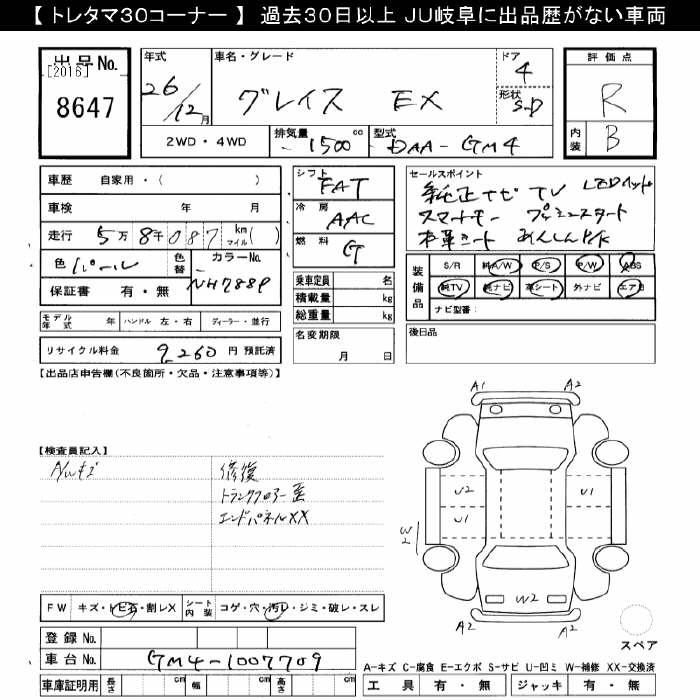 【 トレタマ30コーナー 】 過去30日以上 JU岐阜に出品歴がない車両
出品No.
[2016]
8647
年式
26/12月
車名・グレード
グレイス EX
ドア
4
形状
S-D
2WD・4WD
排気量
1500 cc
型式
DAA-GM4
評価点
R
内装
B
車歴 自家用・( )
車検 年 月
走行 5万8千087 km マイル( )
色 パール
色替
カラーNo.
NH788P
保証書 有・無
シフト
FAT
冷房
AAC
燃料
G
乗車定員 名
積載量 kg
総重量 kg
セールスポイント
純正ナビ TV LEDヘッド
スマートキー プッシュスタート
本革シート あんしんPK
装備品
S/R 純A/W P/S P/W ABS
純TV 純ナビ 革シート 外ナビ エアB
ナビ型番:
モデル年式 年 ハンドル 左・右 ディーラー・並行
リサイクル料金 9,260 円 預託済
名変期限
月 日
後日品
【出品店申告欄(不良箇所・欠品・注意事項等)】
【検査員記入】
A/Wキズ
修復
トランクフロアー歪
エンドパネルXX
A1 A2
U2 U1
U1
W2
W2
A2 A2
スペア
FW キズ・トビ石・割レX
シート内装 コゲ・穴・汚レ・シミ・破レ・スレ
登録 No.
車台 No. GM4-1007709
車庫証明用 長さ cm 幅 cm 高さ cm
A-キズ C-腐食 E-エクボ S-サビ U-凹ミ W-補修 XX-交換済
工具 有・無 ジャッキ 有・無